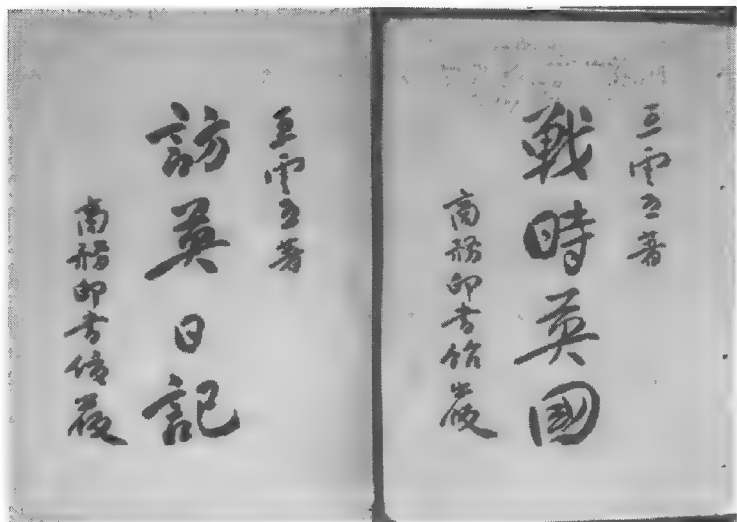 王雲五著
戰時英國
商務印書館
王雲五著
訪英日記
商務印書館